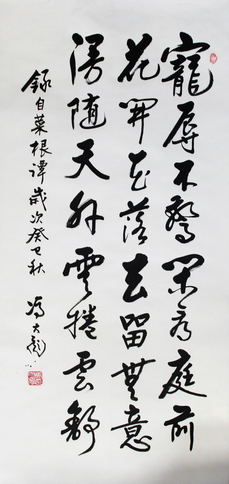 寵辱不驚閑看庭前
花開花落去留無意
漫随天外雲捲雲舒
錄自菜根譚歲次癸巳秋 馮大彪